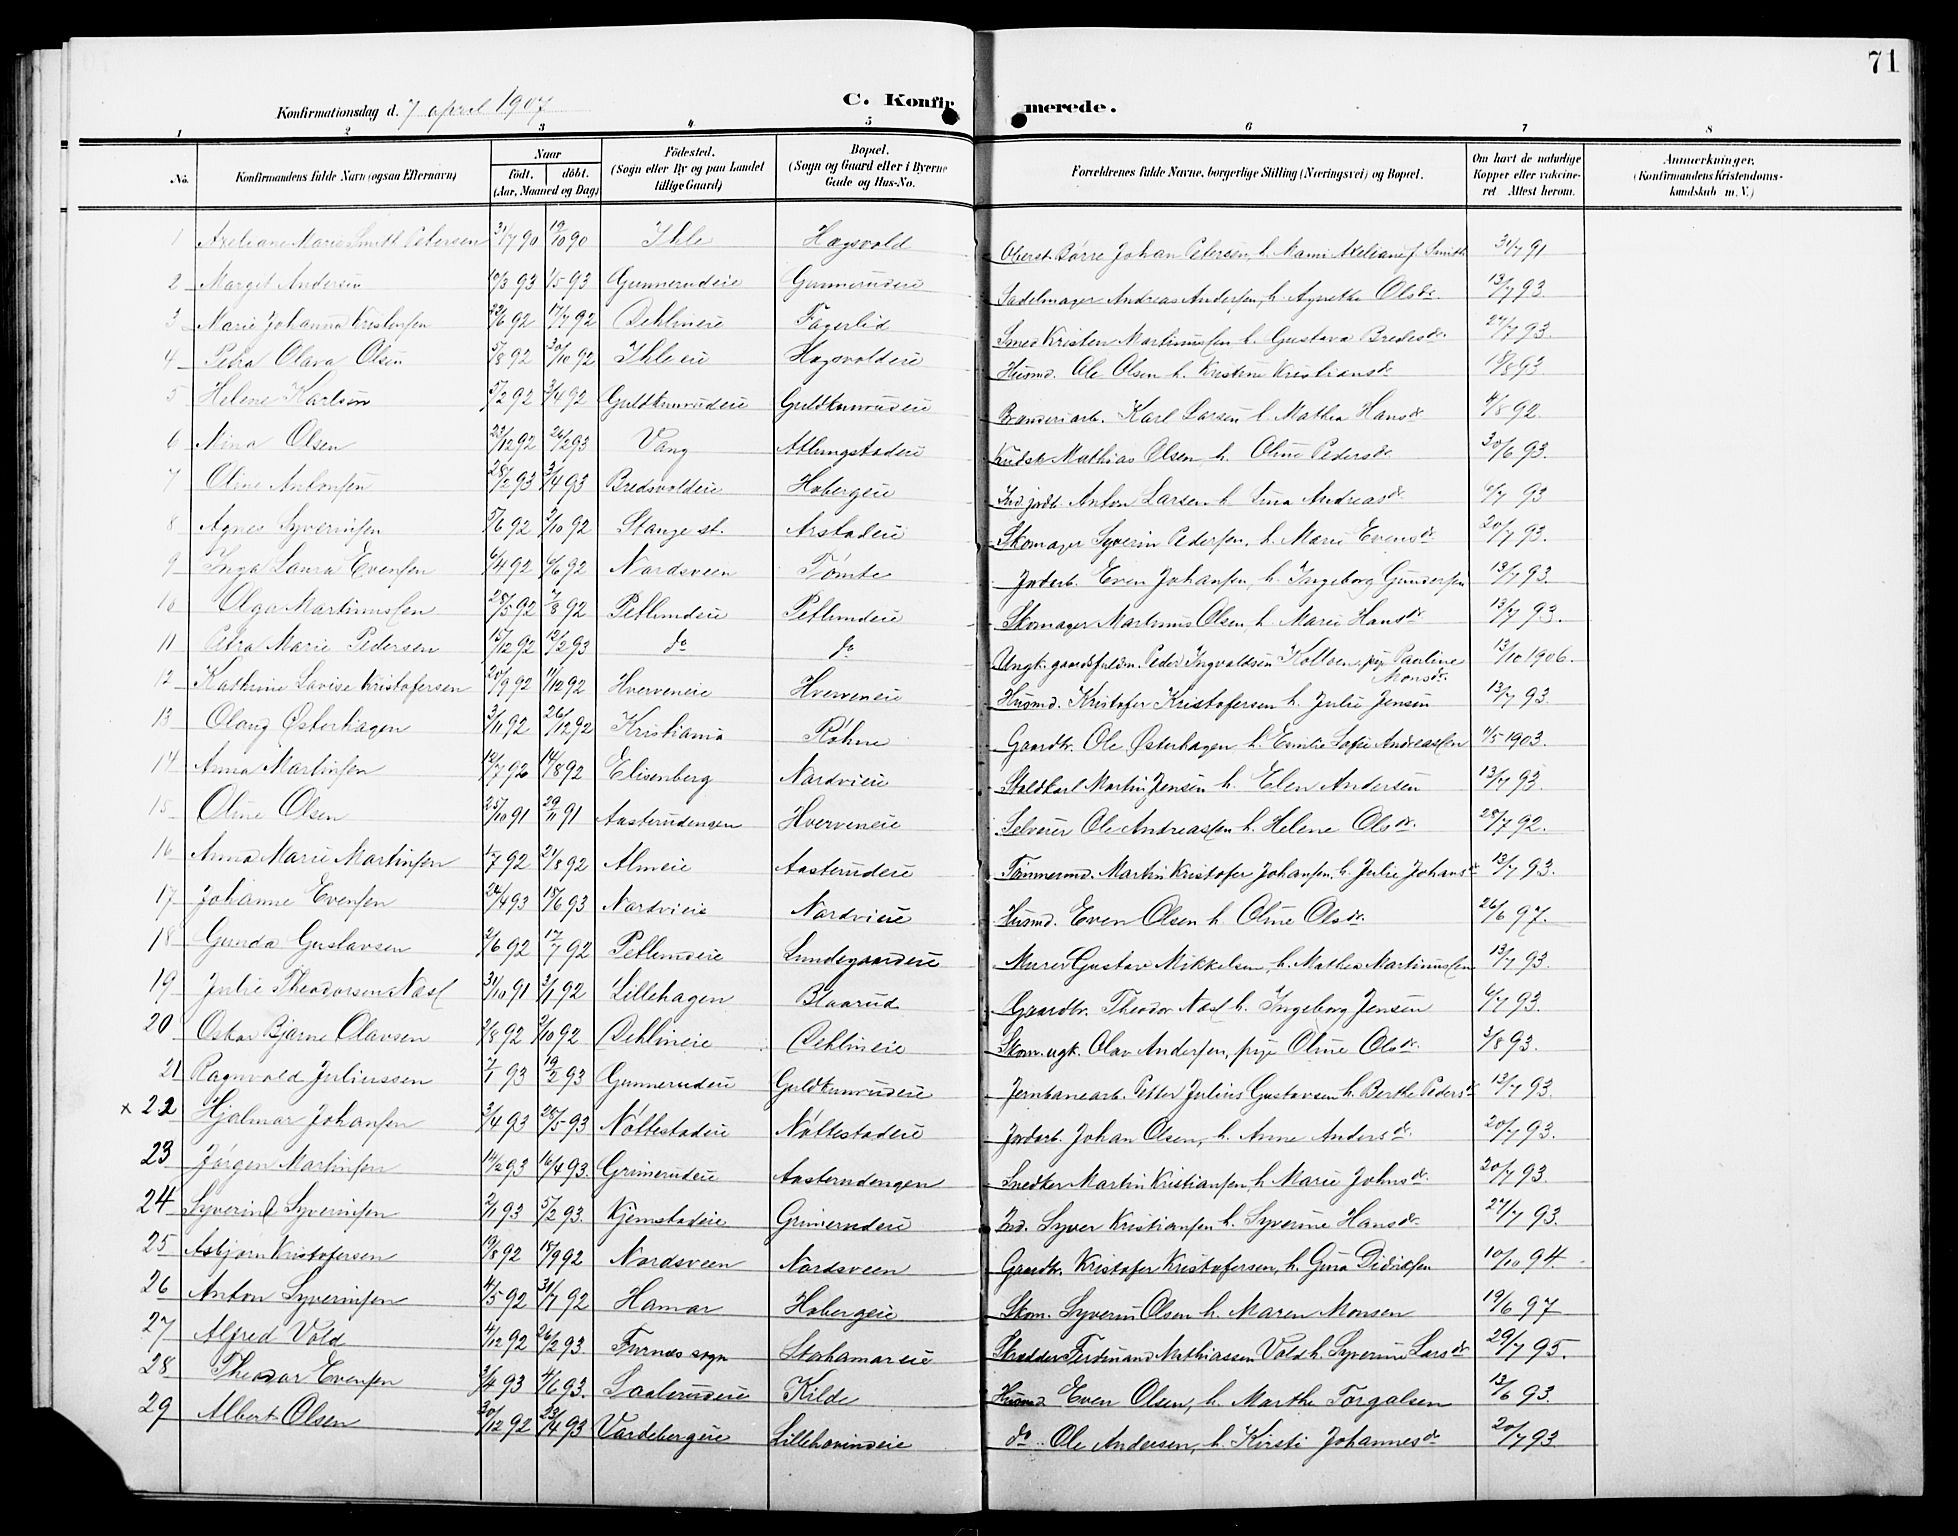 71
Konfirmationsdag d. 7 april 1907
C. Konfirmerede.
1 2 3 4 5 6 7 8
No. Konfirmandens fulde Navn (ogsaa Efternavn) Naar født. døbt. (Aar, Maaned og Dag) Fødested. (Sogn eller By og paa Landet tillige Gaard) Bopæl. (Sogn og Gaard eller i Byerne Gade og Hus-No. Forældrenes fulde Navne, borgerlige Stilling (Næringsvei) og Bopæl. Om havt de naturlige Kopper eller vaccineret. Attest herom. Anmerkninger. (Konfirmandens Kristendomskundskab m. V.)
1 Axeliane Marie Smitt Petersen 31/7 90 19/10 90 Ihle Hagsvold Oberst Børre Johan Petersen, h. Mami Axeliane f. Smith 31/7 91
2 Marget Andersen 10/3 93 1/5 93 Gunnerudeie Gunnerudeie Sadelmager Andreas Andersen, h. Agnethe Olsdr 13/7 93
3 Marie Johanna Kristensen 22/6 92 17/7 92 Dehlineie Fagerlid Smed Kristen Martinussen h. Gustava Bredesdr. 27/7 93
4 Petra Olava Olsen 5/8 92 30/10 92 Ihle eie Hagsvoldeie Husmd. Ole Olsen h. Kristine Kristiansdr 18/8 93
5 Helene Karlsen 5/2 92 3/4 92 Guldkunrudeie Guldkunrudeie Brænderiarb. Karl Larsen h. Mathea Hansdr 4/8 92
6 Nina Olsen 23/12 92 26/2 93 Vang Atlungstadeie Kudsk Mathias Olsen, h. Oline Pedersdr 30/6 93.
7 Oline Antonsen 28/2 93 3/4 93 Bredsvoldeie Hobergeie Ind. jordb. Anton Larsen h. Lina Andreasdr 6/7 93
8 Agnes Syverinsen 5/6 92 2/10 92 Stange st. Arstadeie Skomager Syverin Pedersen, h. Marie Evensdr 20/7 93.
9 Inga Laura Evensen 6/4 92 6/6 92 Nordsveen Tømte Jordarb. Even Johansen, h. Ingeborg Gundersen 13/7 93.
10 Olga Martinussen 28/5 92 7/8 92 Petlundeie Petlundeie Skomager Martinus Olsen, h. Marie Hansdr 13/7 93.
11 Petra Marie Pedersen 15/12 92 12/2 93 do do Ungk. gaardsfuldm. Peder Ingvaldsen Kolloen, pige Pauline Monsdr. 13/10 1906.
12 Kathrine Lovise Kristofersen 20/9 92 11/12 92 Hverveneie Hverveneie Husmd. Kristofer Kristofersen h. Julie Jensen 13/7 93
13 Olaug Østerhagen 3/11 92 26/12 92 Kristiania Røhne Gaardbr. Ole Østerhagen, h. Emilie Sofie Andreassen 11/5 1903.
14 Anna Martinsen 12/7 92 14/8 92 Elisenberg Nordvieie Staldkarl Martin Jensen h. Elen Andersen 13/7 93
15 Oline Olsen 25/10 91 29/11 91 Aasterudengen Hverveneie Selveier Ole Andreassen h. Helene Olsdr. 28/7 92.
16 Anna Marie Martinsen 1/7 92 21/8 92 Almeie Aasterudeie Tømmermd. Martin Kristofer Johansen, h. Julie Johansdr 13/7 93.
17 Johanne Evensen 24/4 93 18/6 93 Nordvieie Nordvieie Husmd. Even Olsen h. Oline Olsdr. 26/6 97.
18 Gunda Gustavsen 2/6 92 17/7 92 Petlundeie Lundegaardeie Murer Gustav Mikkelsen, h. Mathea Martinussen 13/7 93.
19 Julie Theodorsen Næsl 31/10 91 3/1 92 Lillehagen Blaarud Gaardbr. Theodor Næsl h. Ingeborg Jensen 6/7 93.
20 Oskar Bjarne Olavsen 2/8 92 2/10 92 Dehlineie Dehlineie Skom. ugk. Olav Andersen, pige Oline Olsdr. 3/8 93.
21 Ragnvald Juliussen 7/1 93 19/2 93 Gunnerudeie Guldkunrudeie Jernbanearb. Petter Julius Gustavsen h. Berthe Pedersdr 13/7 93.
x 22 Hjalmar Johansen 3/4 93 28/5 93 Nøttestadeie Nøttestadeie Jordarb. Johan Olsen, h. Anne Andersdr. 20/7 93.
23 Jørgen Martinsen 14/2 93 16/4 93. Grimerudeie Aasterudengen Snedker Martin Kristiansen, h. Marie Johnsdr. 20/7 93.
24 Syverin Syverinsen 2/1 93 5/2 93. Kjemstadeie Grimerudeie Ind. Syver Kristiansen h. Syverine Hansdr. 27/7 93.
25 Asbjørn Kristofersen 19/8 92 18/9 92 Nordsveen Nordsveen Gaardbr. Kristofer Kristofersen, h. Guro Didriksen 10/10 94.
26 Anton Syverinsen 4/5 92 31/7 92 Hamar Hobergeie Skom. Syverin Olsen h. Maren Monsen 19/6 97
27 Alfred Vold 4/12 92 26/2 93. Furnæs sogn Storhamareie Skrædder Ferdinand Mathiassen Vold h. Syverine Larsdr 29/7 95.
28 Theodor Evensen 3/4 93 4/6 93. Saalerudeie Kilde Husmd Even Olsen, h. Marthe Torgalsen 13/6 93.
29 Albert Olsen 30/12 92 23/4 93 Vardebergeie Lillehovindeie do. Ole Andersen, h. Kirsti Johannesdr 20/7 93